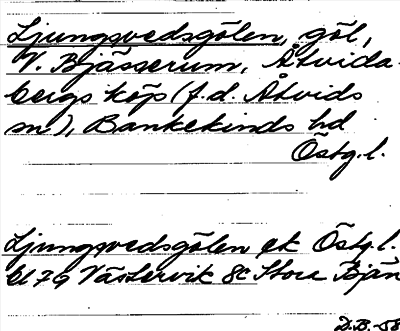 Ljungsvedsgölen, göl,
V. Bjässerum, Åtvida-
bergs köp (f.d. Åtvids
sn), Bankekinds hd
Östg.l.
Ljungsvedsgölen ek Östg.l.
Bl 79 Västervik 8c Stora Bjän
D.B. -58